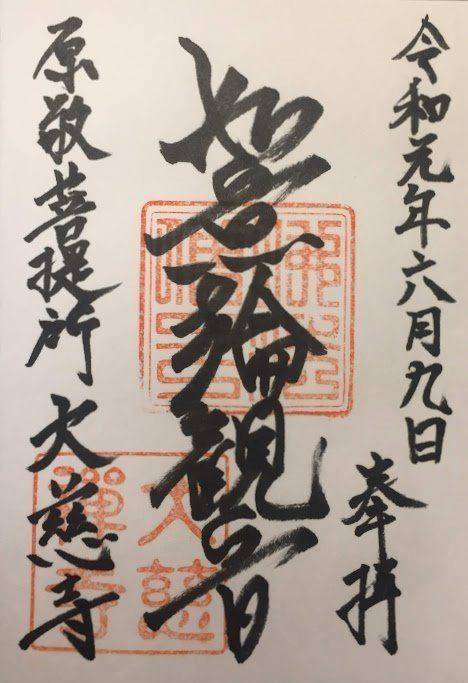 令和元年六月九日
奉拝
如意輪観音
原敬菩提所 大慈寺
大慈
禅寺